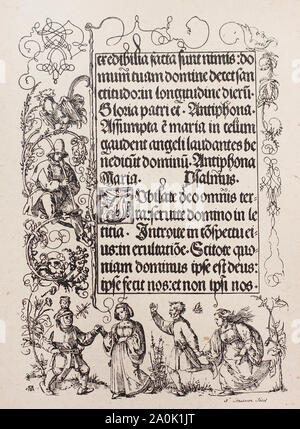 credibilia facta sunt nimis: do
mum tuam domine decet san
ctitudo: in longitudine dierū.
Gloria patri et. Antiphona.
Assumpta ē maria in celum
gaudent angeli laudantes be
nedicūt dominū. Antiphona
Maria. Psalmus.
Jubilate deo omnis ter
ra: seruite domino in le
ticia. Introite in cōspectu ei
us: in exultatiōe. Scitote quo
niam dominus ipse est deus:
ipse fecit nos: et non ipsi nos.
Strixner
2A0K1JT